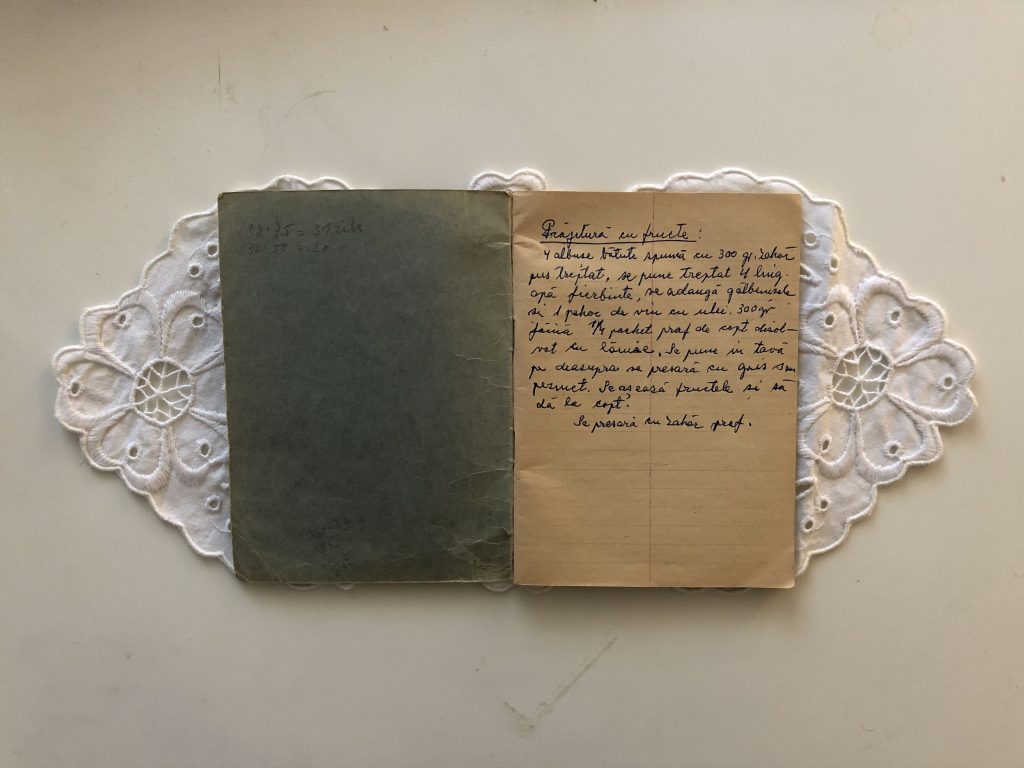 38·75 = 31
Prăjitură cu fructe:
4 albuse bătute spumă cu 300 gr. zahăr
pus treptat, se pune treptat 4 ling.
apă fierbinte, se adaugă gălbenusele
si 1 pahar de vin cu ulei. 300 gr
făină 1/4 pachet praf de copt disol-
vat cu lămâie. Se pune in tavă
pe deasupra se presară cu gris sau
pezmet. Se asează fructele si să
dă la copt.
Se presară cu zahăr praf.